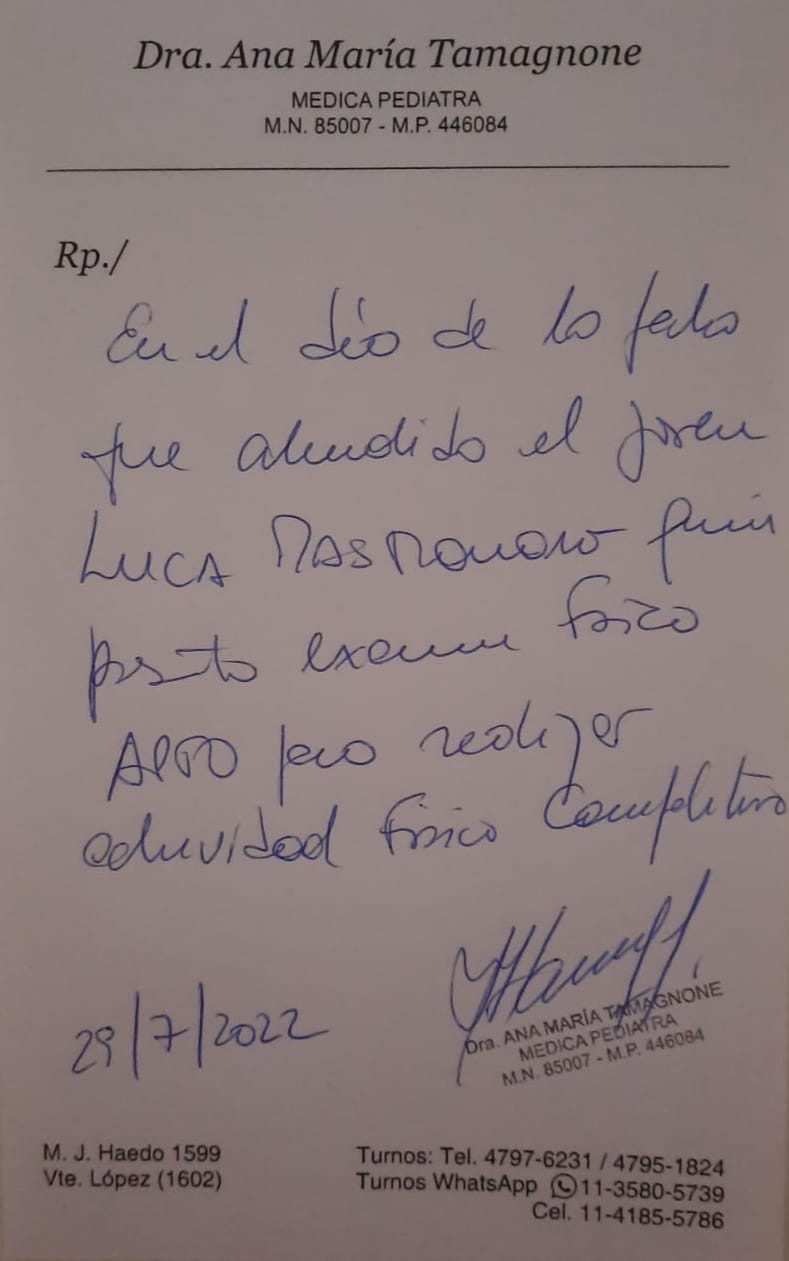 Dra. Ana María Tamagnone
MEDICA PEDIATRA
M.N. 85007 - M.P. 446084
Rp./
En el día de la fecha
fue atendido el joven
LUCA quien
presento examen físico
APTO para realizar
actividad física competitiva
29/7/2022
Dra. ANA MARÍA TAMAGNONE
MEDICA PEDIATRA
M.N. 85007 - M.P. 446084
M. J. Haedo 1599
Vte. López (1602)
Turnos: Tel. 4797-6231 / 4795-1824
Turnos WhatsApp 11-3580-5739
Cel. 11-4185-5786